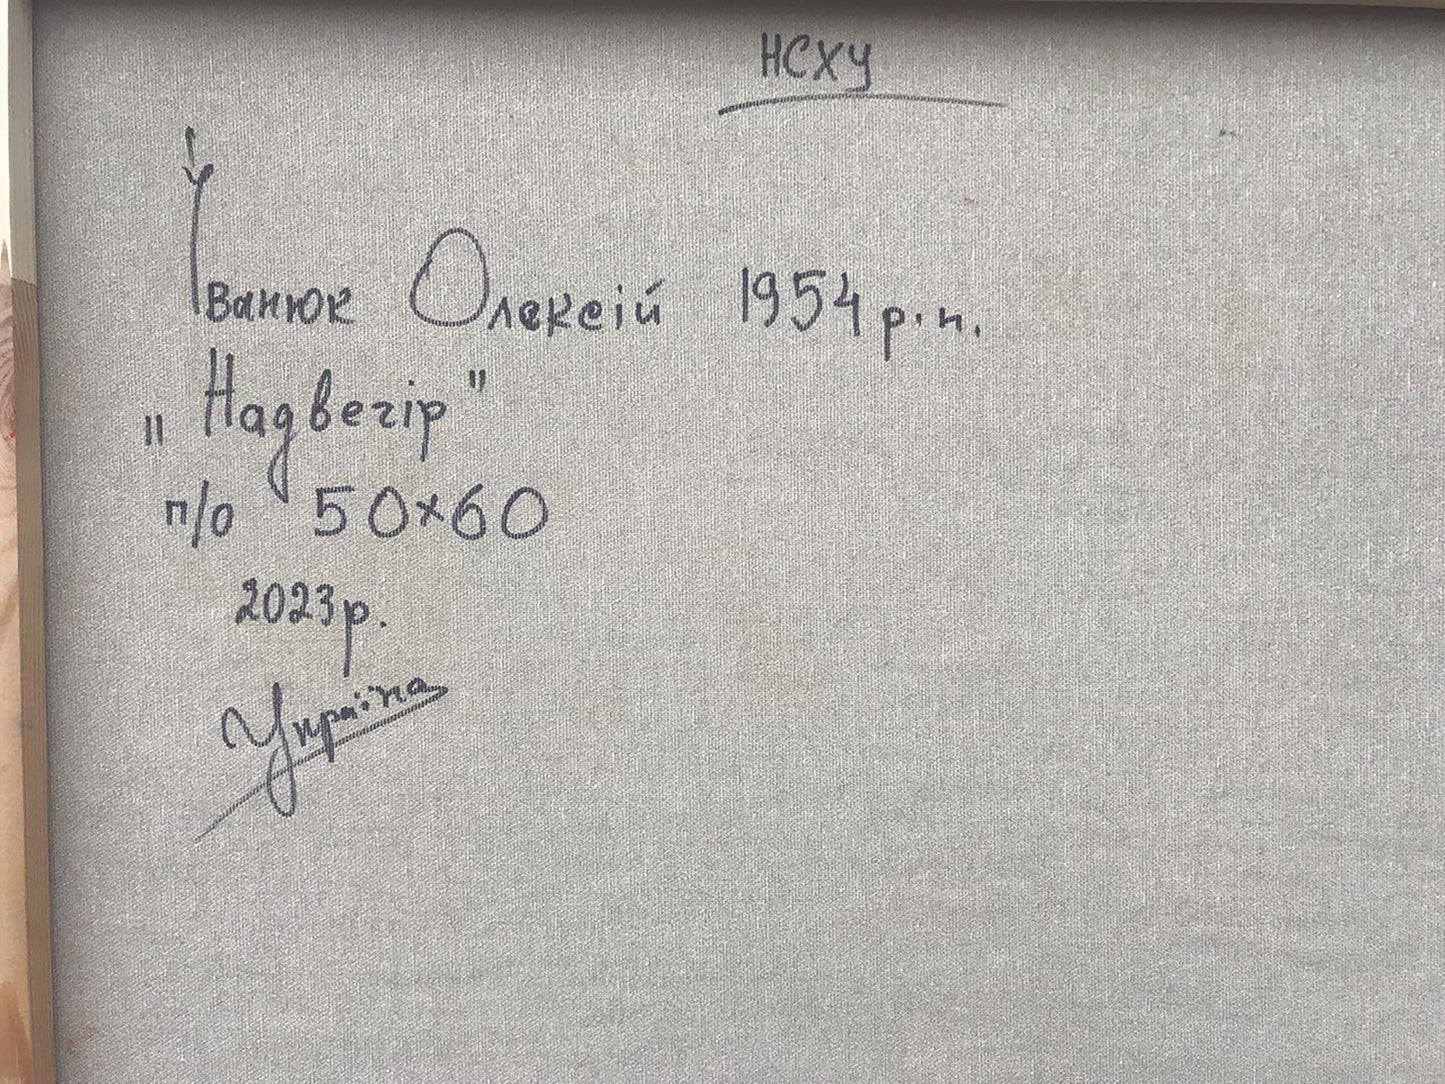 НСХУ
Іванюк Олексій 1954 р.н.
„Надвечір"
п/о 50×60
2023р.
Україна